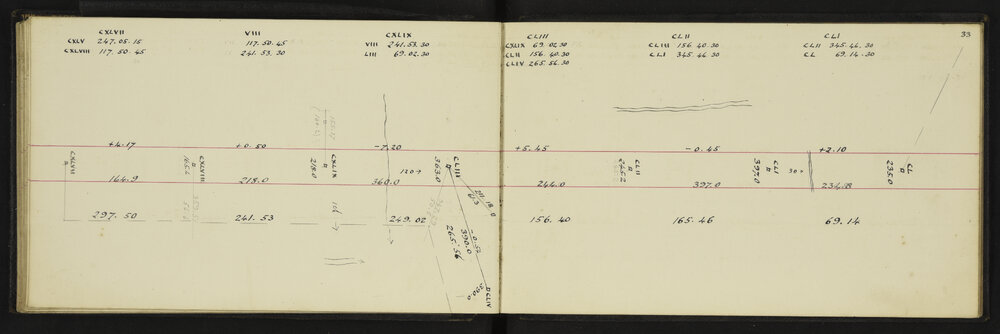 CXLVII
CXLV 247.05.15
CXLVIII 117.50.45
VIII
117.50.45
241.53.30
CXLIX
VIII 241.53.30
LIII 69.02.30
CLIII
CXLIX 69.02.30
CLII 156.40.30
CLIV 265.56.30
CLII
CLIII 156.40.30
CLI 345.46.30
CLI
CLII 345.46.30
CL 69.14.30
33
+4.17
+0.50
-7.20
+5.45
-0.45
+2.10
CXLVIII
CXLVIII
CXLIX
218.0
120→
363.0
CLIII
CLII
245.2
CLI
397.0
30→
CL
235.0
164.9
218.0
360.0
244.0
397.0
234.8
297.50
241.53
249.02
156.40
165.46
69.14
-0.52
390.0
265.56
CLIV
390.0